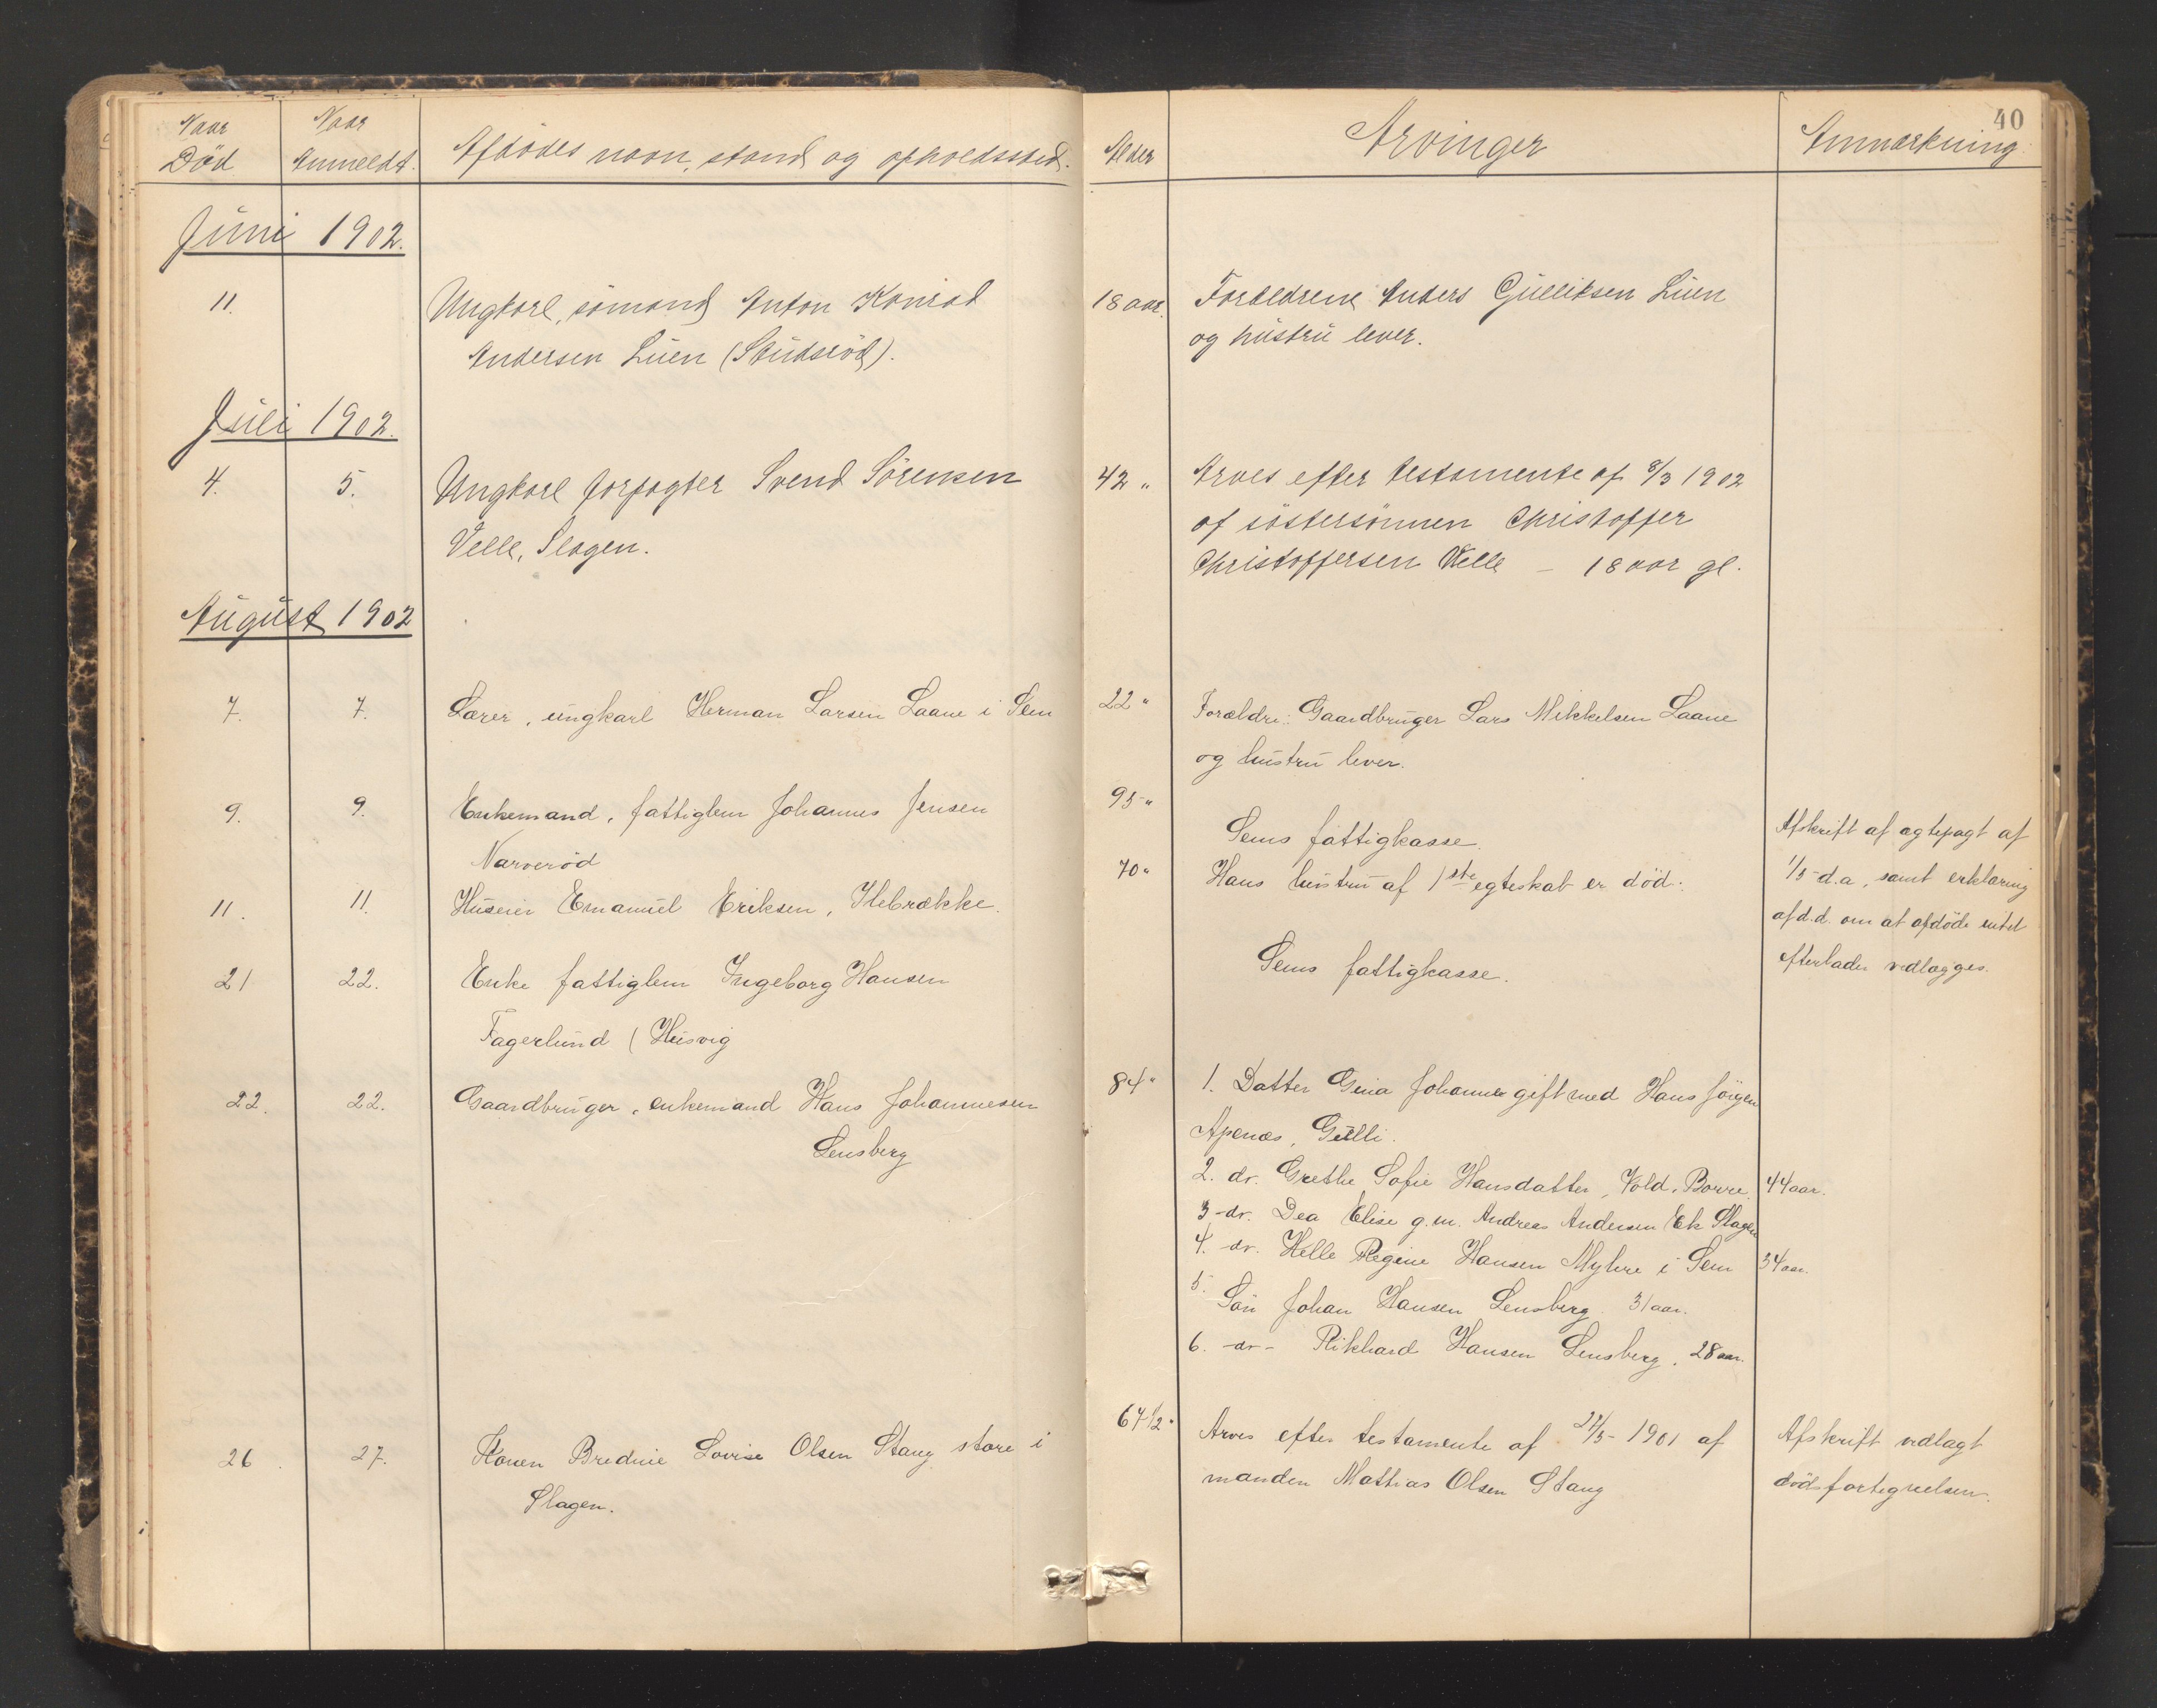 40
Naar Død | Naar Anmeldt. | Afdødes navn, stand og opholdssted. | Alder | Arvinger | Anmærkning
Juni 1902.
11. | Ungkarl, sömand Anton Konrad | 18 aar. | Forældrene Anders Gulliksen Luen
Andersen Luen (Studsröd). | og hustru lever.
Juli 1902.
4. | 5. | Ungkarl forpagter Svend Sörensen | 42 " | Arves efter testamente af 8/3 1902
Velle, Slagen. | af söstersönnen Christoffer
Christoffersen Velle – 18 aar gl.
August 1902
7. | 7. | Lærer, ungkarl Herman Larsen Laane i Sem | 22 " | Forældre: Gaardbruger Lars Mikkelsen Laane
og hustru lever.
9. | 9. | Enkemand, fattiglem Johannes Jensen | 95 "
Narveröd | Sems fattigkasse.
11. | 11. | Huseier Emanuel Eriksen, Ilebrække. | 70 " | Hans hustru af 1ste egteskab er död. | Afskrift af ægtepagt af
1/5 d.a, samt erklæring
af d.d. om at afdöde intet
efterlader vedlægges.
21 | 22. | Enke fattiglem Ingeborg Hansen | Sems fattigkasse.
Fagerlund (Husvig
22. | 22. | Gaardbruger, enkemand Hans Johannesen | 84 " | 1. Datter Gina Johanne gift med Hans Jörgen
Lensberg | Apenæs, Gulli.
2. dr. Grethe Sofie Hansdatter, Vold, Borre. 44 aar.
3 - dr. Dea Elise g.m. Andreas Andersen Ek Slagen
4. dr. Helle Regine Hansen Myhre i Sem 34 aar.
5. Sön Johan Hansen Lensberg. 31 aar.
6. - dr - Rikhard Hansen Lensberg, 28 aar.
26. | 27. | Konen Bredine Lovise Olsen Stang store i | 64 1/2 " | Arves efter testamente af 24/5 - 1901 af | Afskrift vedlagt
Slagen. | manden Mathias Olsen Stang | dödsfortegnelsen.